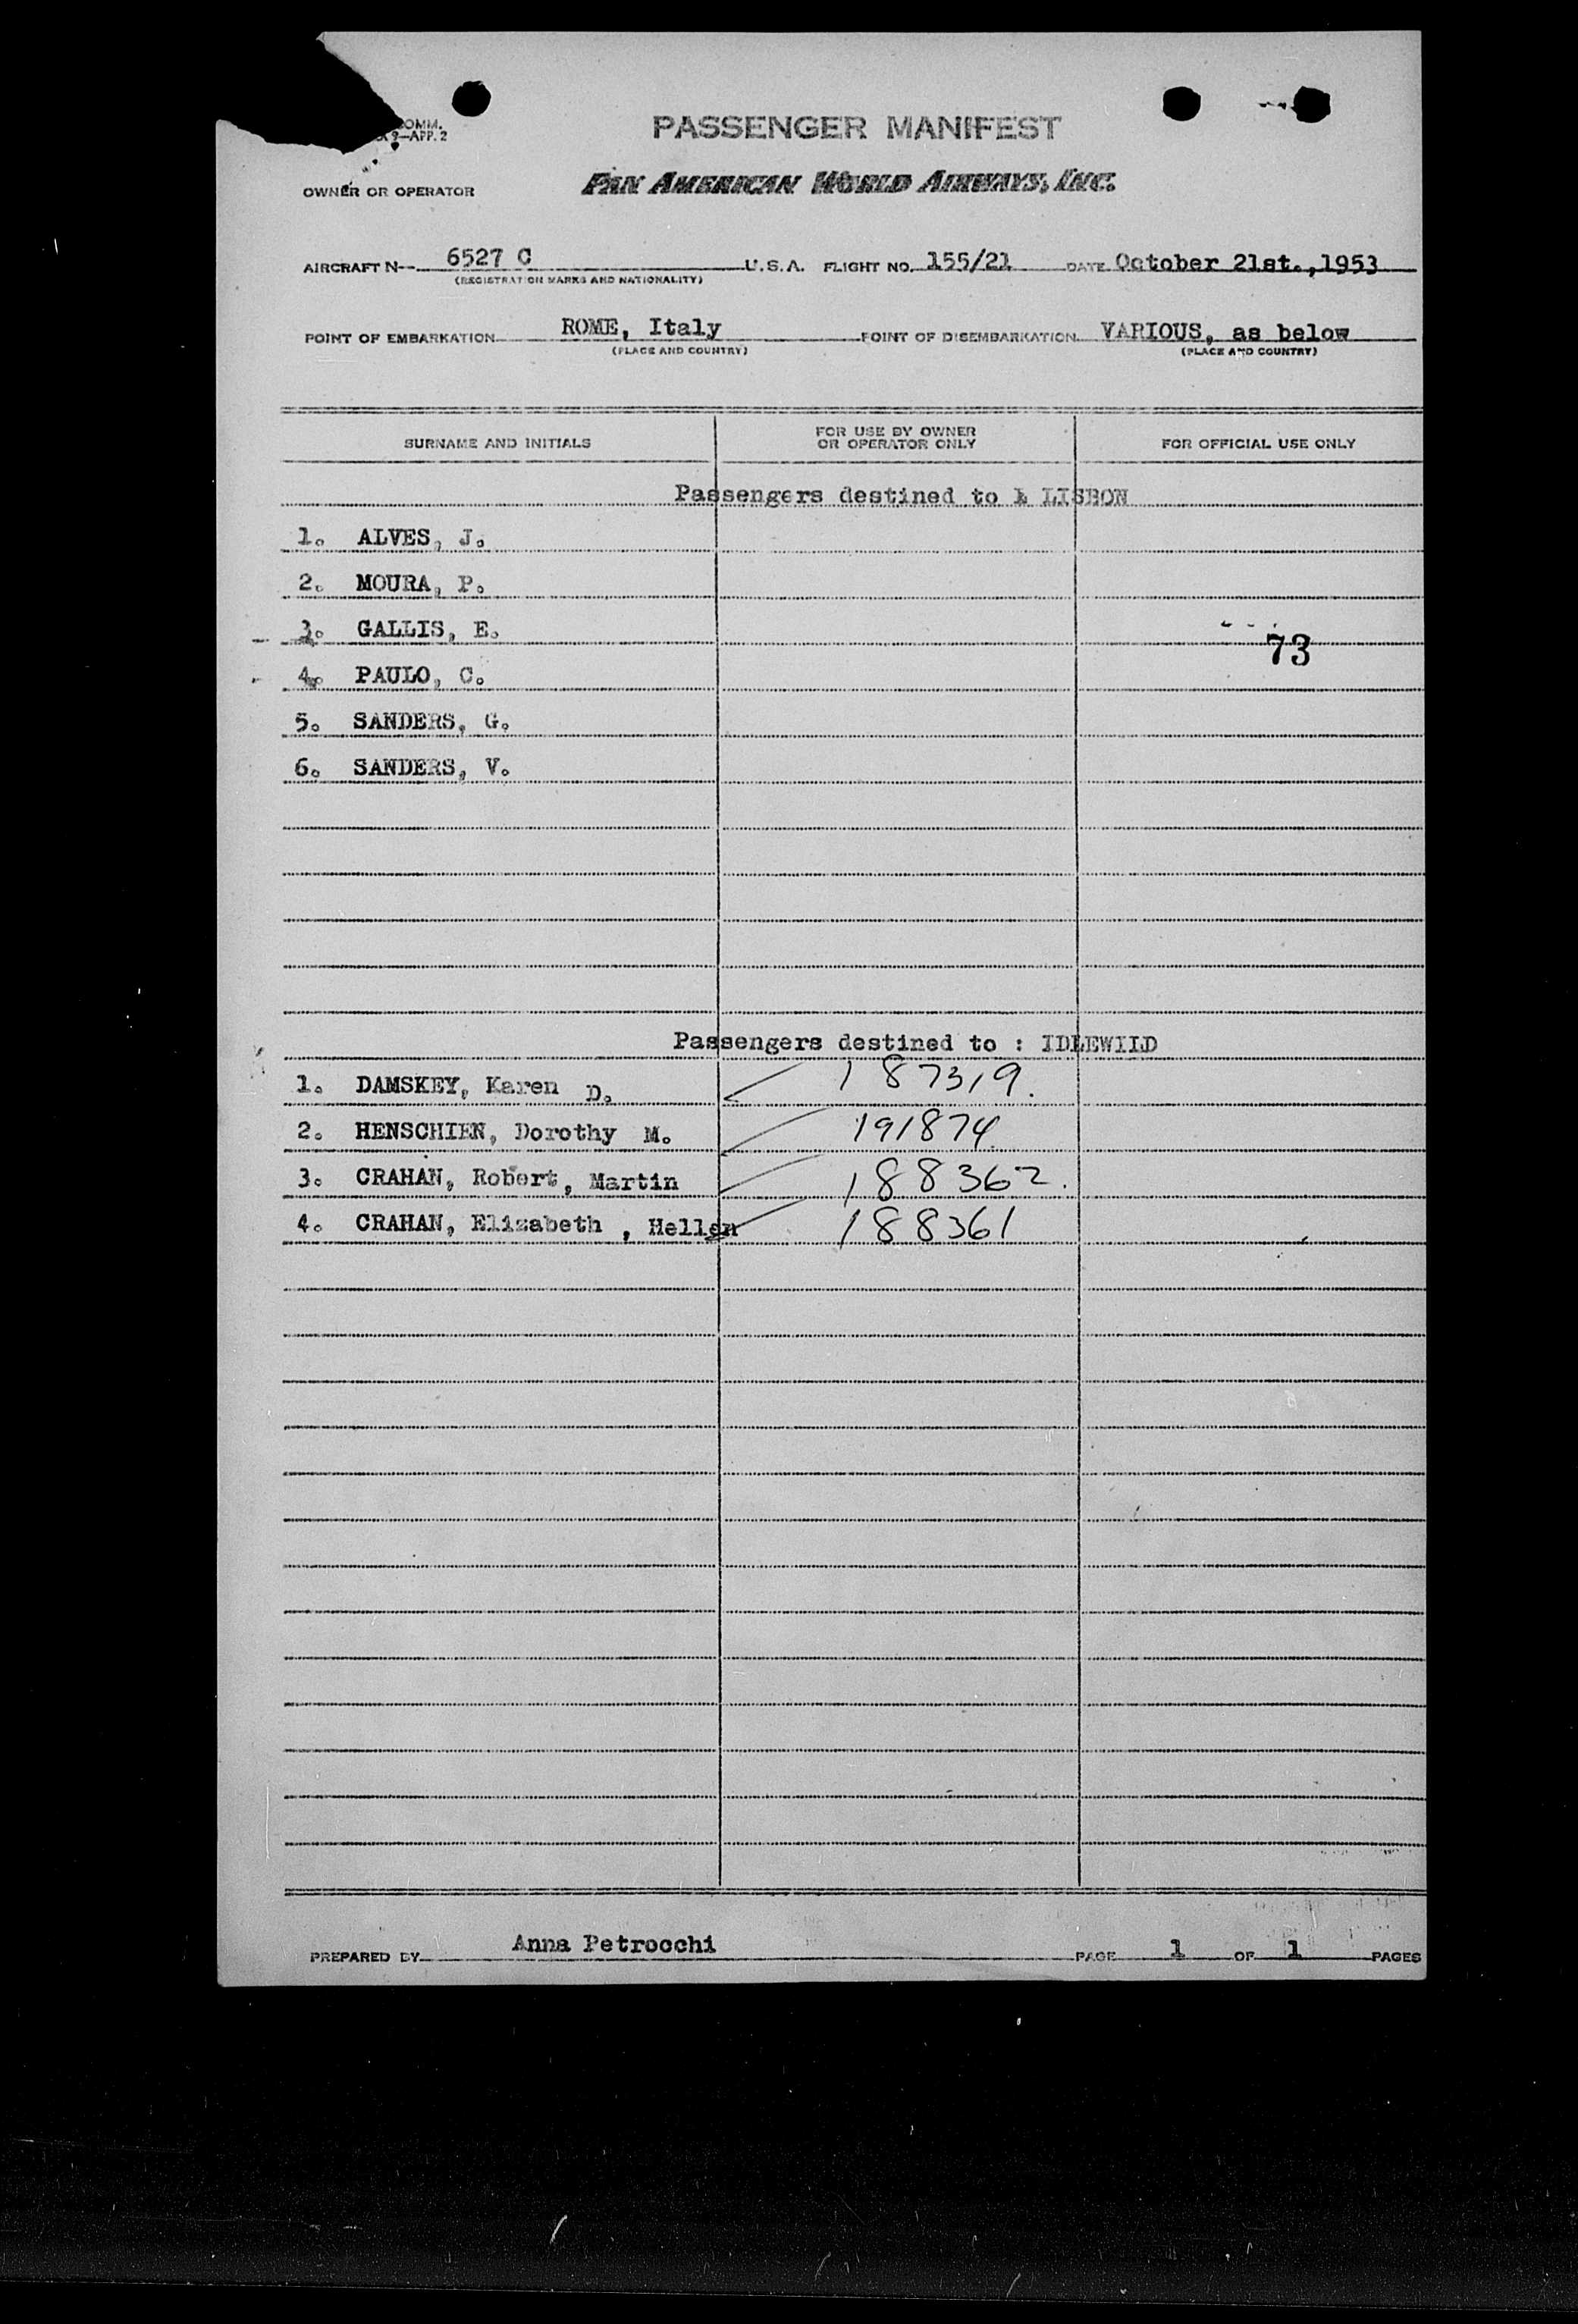 PASSENGER MANIFEST
OMM.
9—APP. 2
OWNER OR OPERATOR PAN AMERICAN WORLD AIRWAYS, INC.
AIRCRAFT N-- 6527 C U.S.A. FLIGHT NO. 155/21 DATE October 21st.,1953
(REGISTRATION MARKS AND NATIONALITY)
POINT OF EMBARKATION ROME, Italy POINT OF DISEMBARKATION VARIOUS, as below
(PLACE AND COUNTRY) (PLACE AND COUNTRY)
SURNAME AND INITIALS FOR USE BY OWNER OR OPERATOR ONLY FOR OFFICIAL USE ONLY
Passengers destined to LISBON
1. ALVES, J.
2. MOURA, P.
3. GALLIS, E.
73
4. PAULO, C.
5. SANDERS, G.
6. SANDERS, V.
Passengers destined to : IDLEWILD
1. DAMSKEY, Karen D. 187319.
2. HENSCHIEN, Dorothy M. 191874
3. CRAHAN, Robert, Martin 188362.
4. CRAHAN, Elizabeth , Hellen 188361
PREPARED BY Anna Petrocchi PAGE 1 OF 1 PAGES